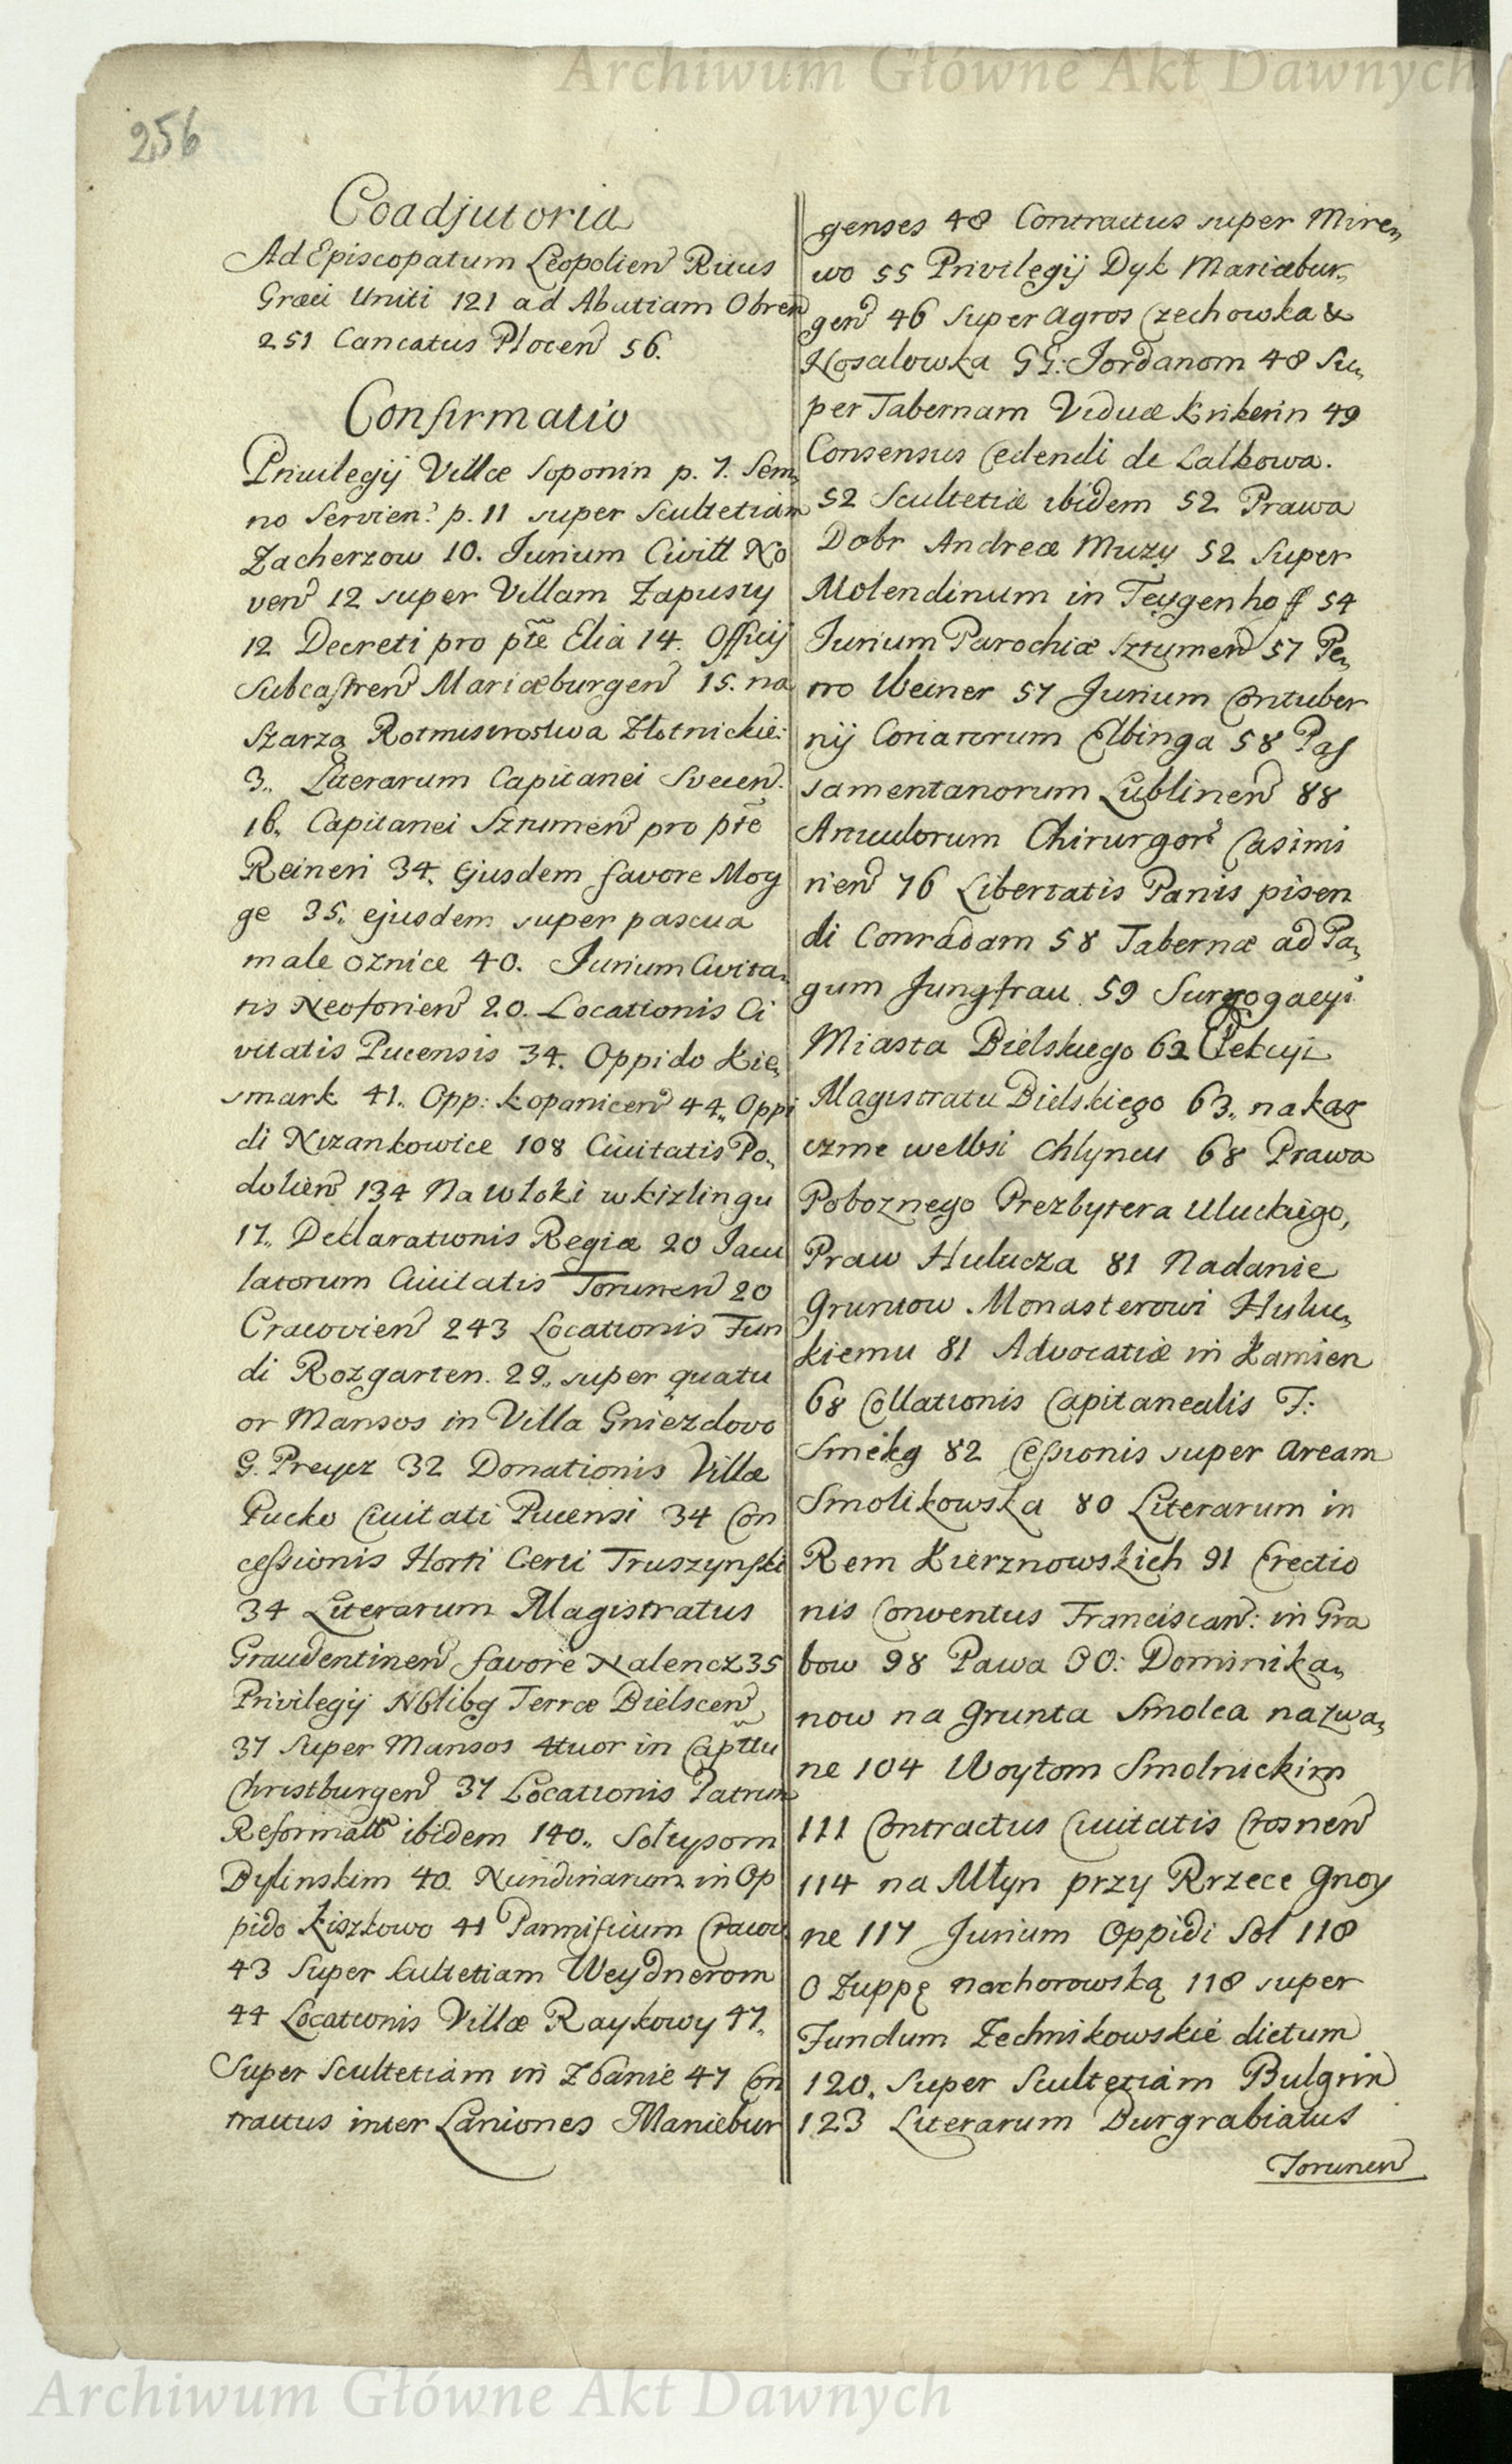 Archiwum Główne Akt Dawnych
256
Coadjutoria
Ad Episcopatum Leopolien Ritus
Græci Uniti 121 ad Abatiam Obren
251 Cancatus Plocen 56.
Confirmatio
Privilegij Villæ Soponin p. 7. Sem„
no Servien: p. 11 super Scultetiam
Zacherzow 10. Jurium Civitt No
ven 12 super Villam Zapusty
12 Decreti pro pte Elia 14. Officij
Subcastren Mariæburgen 15. na
Szarzą Rotmistrostwa Złotnickie:
3„ Literarum Capitanei Svecen.
16„ Capitanei Sztumen pro pte
Reineri 34„ Ejusdem favore Mog
ge 35„ ejusdem super pascua
male oznice 40. Jurium Civita„
tis Neoforien 20. Locationis Ci
vitatis Pucensis 34. Oppido Kie„
smark 41„ Opp: Kopanicen 44„ Oppi
di Nizankowice 108 Civitatis Po„
dolien 134 Na Wloki w kizlingu
17„ Declarationis Regiæ 20 Jacu
latorum Civitatis Torunen 20
Cracovien 243 Locationis Fun
di Rozgarten. 29„ super quatu
or Mansos in Villa Gniezdovo
G. Preyez 32 Donationis Villæ
Pucko Civitati Pucensi 34 Con
cessionis Horti Certi Truszynski
34 Literarum Magistratus
Graudentinen favore Nalencz 35
Privilegij Nblibg Terræ Bielscen
37 Super Mansos 4tuor in Capttu
Christburgen 37 Locationis Patrum
Reformatt ibidem 140„ Sołtysom
Bylinskim 40. Nundinarum in Op
pido Kiszkowo 41 Pannificum Cracov.
43 Super Scultetiam Weydnerom
44 Locationis Villæ Raykowy 47„
Super Scultetiam in Zbanie 47 Con
tractus inter Laniones Mariebur
genses 48 Contractus super Mire„
wo 55 Privilegij Dyk Mariæbur„
gen 46 Super agros Czechowka &
Kosalowka GG: Jordanom 48 Su„
per Tabernam Viduæ Krikerin 49
Consensus Cedendi de Lalkowa.
52 Scultetiæ ibidem 52 Prawa
Dobr Andreæ Muzy 52 Super
Molendinum in Teygenhoff 54
Jurium Parochiæ Sztumen 57 Pe„
tro Weiner 57 Jurium Contuber
nij Coriariorum Elbinga 58 Pas
samentanorum Lublinen 88
Articulorum Chirurgor Casimi
rien 76 Libertatis Panis pisen
di Conradam 58 Tabernæ ad Pa„
gum Jungfrau 59 Surrogacyi
Miasta Bielskiego 62
Magistratu Bielskiego 63„ na kar
czme we Wsi Chlyneu 68 Prawa
Poboznego Prezbytera Uluckiego,
Praw Hulucza 81 Nadanie
Gruntow Monasterowi Huluc„
kiemu 81 Advocatiæ in Kamien
68 Collationis Capitanealis F:
Smekg 82 Cessionis super Aream
Smolikowska 80 Literarum in
Rem Kierznowskich 91 Erectio
nis Conventus Franciscan: in Gra
bow 98 Pawa OO: Dominika„
now na Grunta Smolea nazwa„
ne 104 Woytom Smolnickim
111 Contractus Civitatis Crosnen
114 na Młyn przy Rzrece Gnoy
ne 117 Jurium Oppidi Sol 118
O Zuppę nachorowską 118 super
Fundum Zechnikowskie dictum
120„ Super Scultetiam Bulgrin
123 Literarum Burgrabiatus
Torunen
Archiwum Główne Akt Dawnych